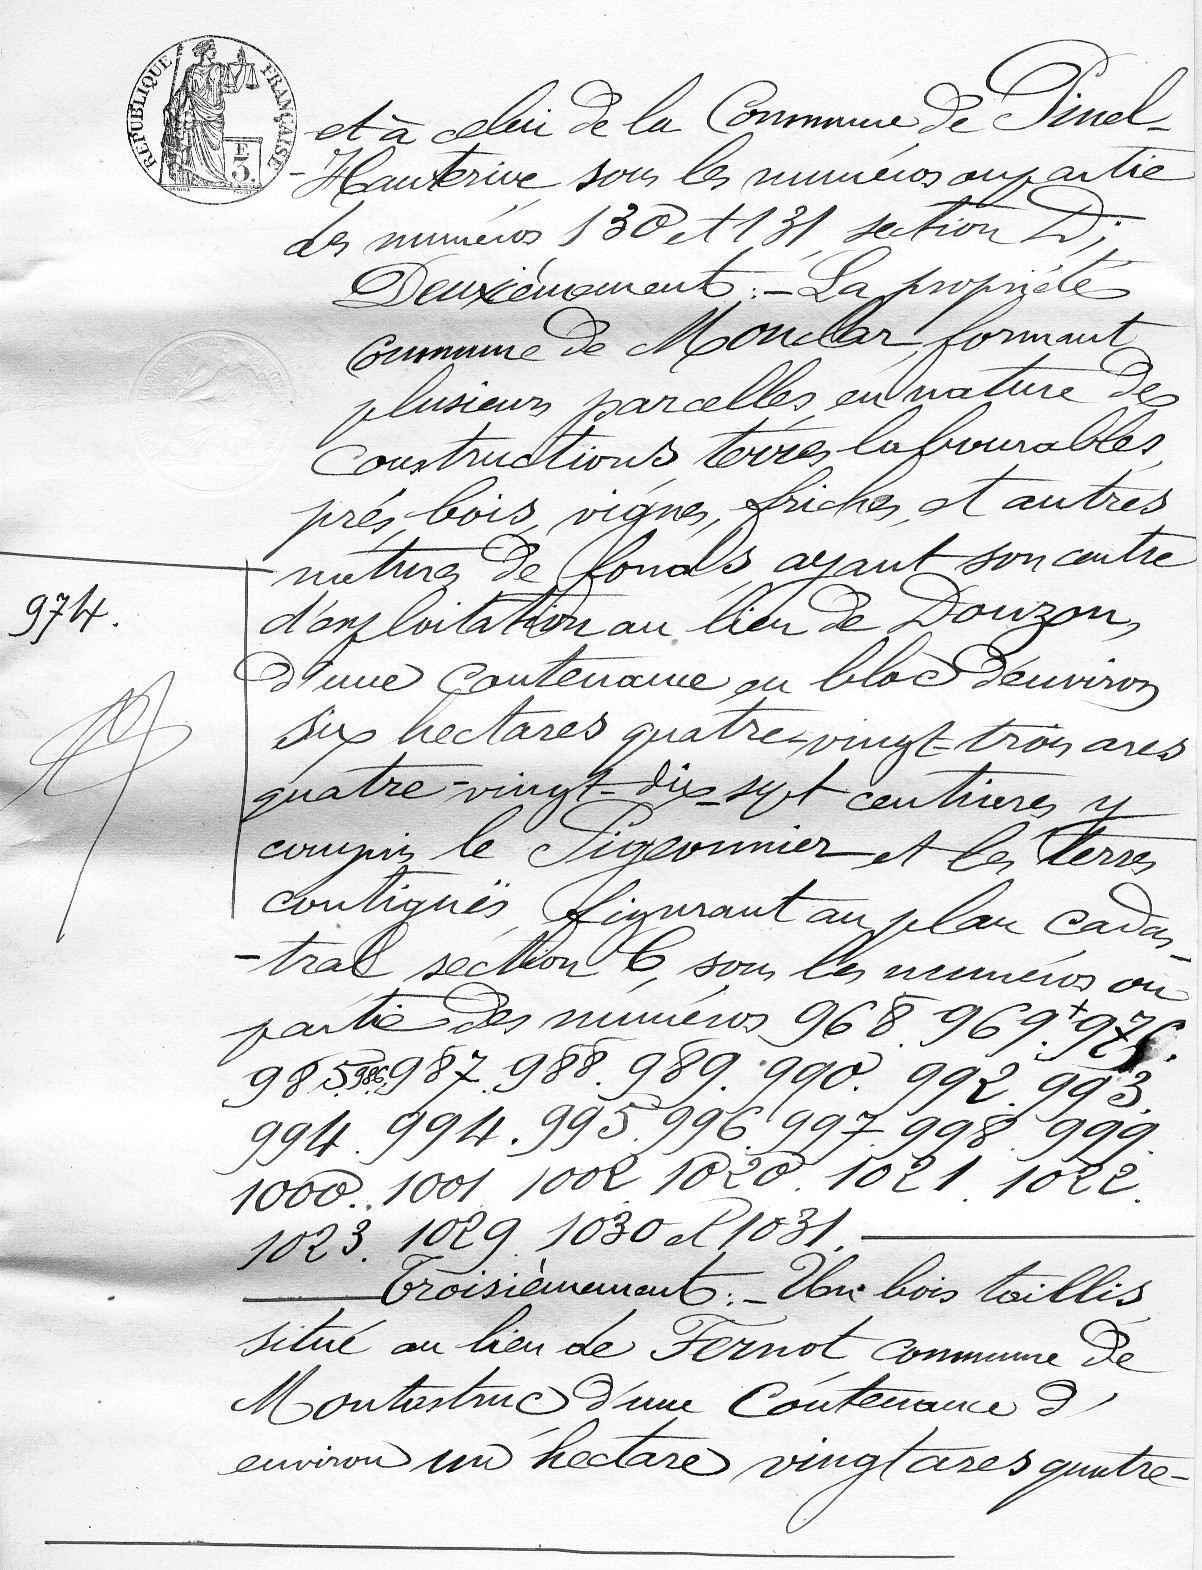 RÉPUBLIQUE FRANÇAISE
F
3.
et à celui de la Commune de Pinel-
-Hauterive, sous les numéros ou partie
des numéros 130 et 131, section D;
Deuxièmement :- La propriété
commune de Monclar, formant
plusieurs parcelles, en nature de
constructions, terres labourables,
prés, bois, vignes, friches, et autres
natures de fonds, ayant son centre
d'exploitation au lieu de Douzon,
974.
d'une contenance en bloc d'environ
six hectares quatre-vingt-trois ares
quatre-vingt-dix-sept centiares y
compris le Pigeonnier et les terres
contiguës, figurant au plan cadas-
-tral section C, sous les numéros ou
partie des numéros 968. 969. + 976.
985. 986. 987. 988. 989. 990. 992. 993.
994. 994. 995. 996. 997. 998. 999.
1000. 1001. 1002. 1020. 1021. 1022.
1023. 1029. 1030 et 1031.
Troisièmement :- Un bois taillis
situé au lieu de Fernot commune de
Montastruc d'une contenance d'
environ un hectare vingt ares quatre-